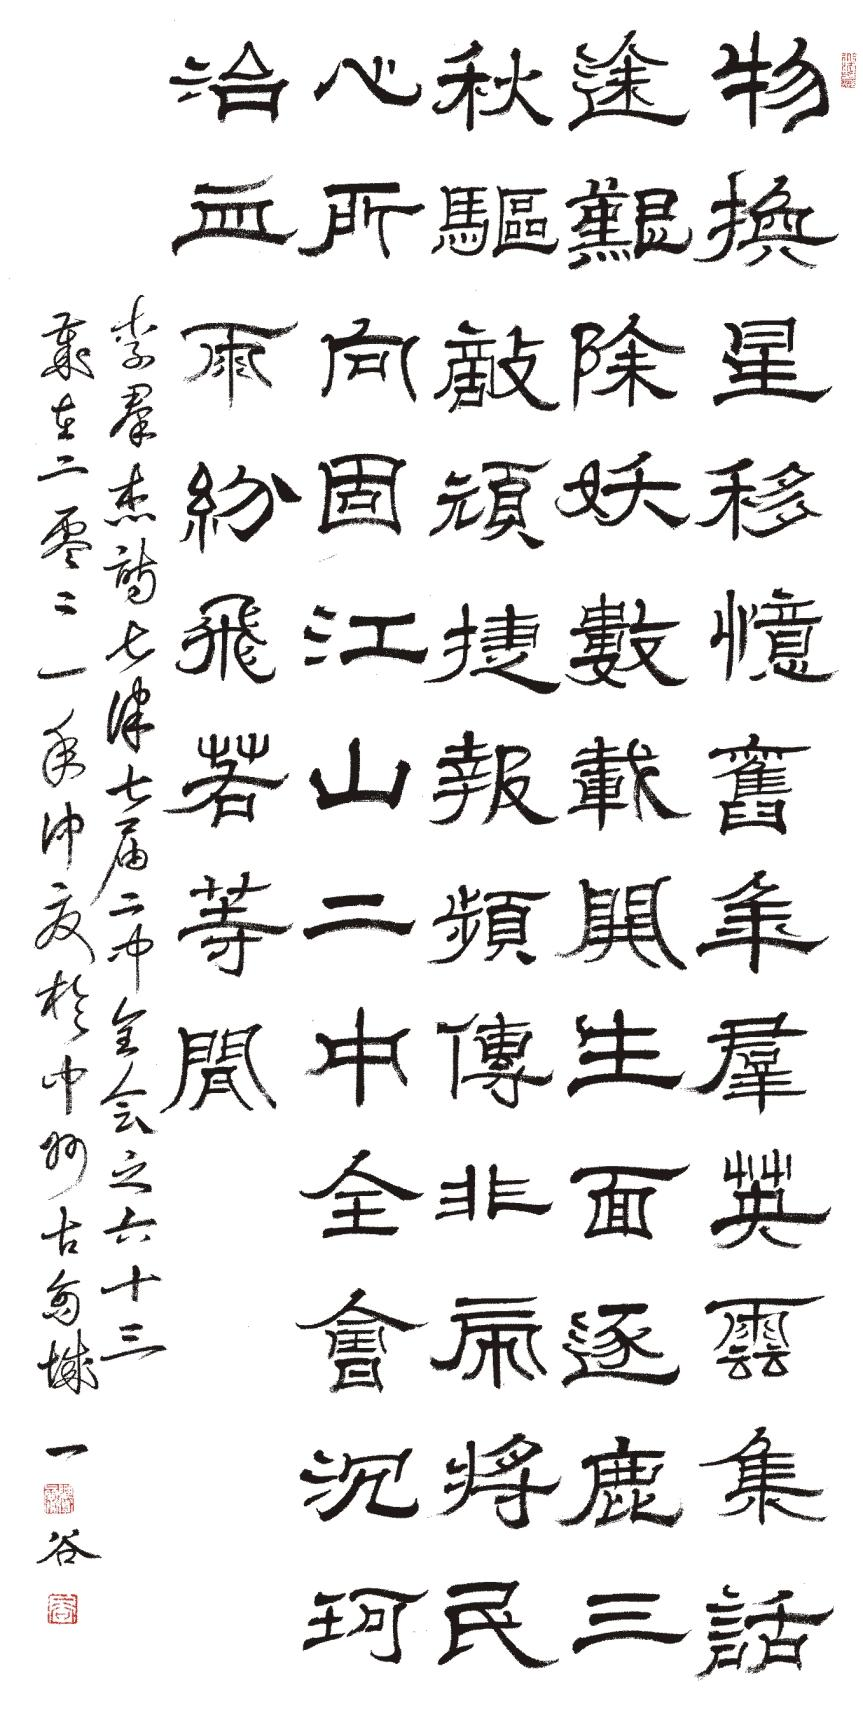 物換星移憶舊年羣英雲集話
途艱除妖數載開生面逐鹿三
秋驅敵頑捷報頻傳非虎將民
心所向固江山二中全會沉珂
治血雨紛飛若等閒
李羣杰詩七律七届二中全会之六十三
歲在二零二一年仲夏於中州古商城 一谷